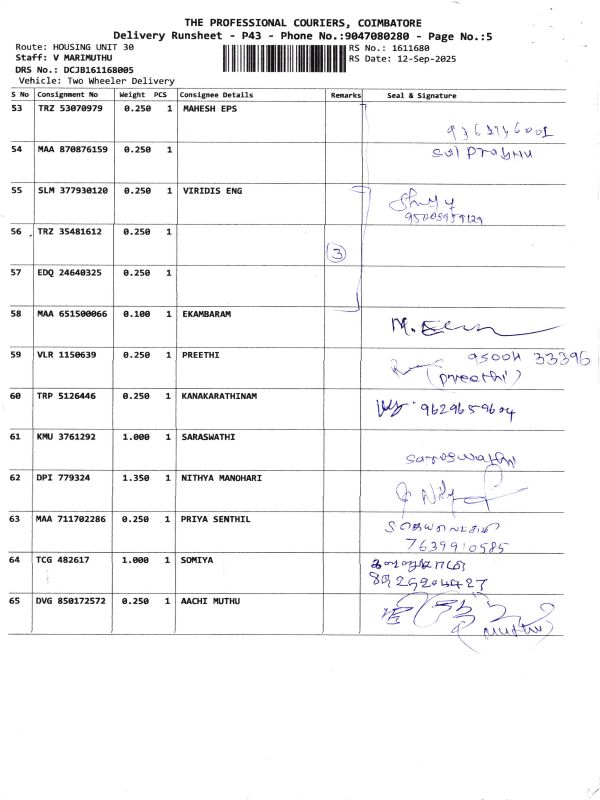 THE PROFESSIONAL COURIERS, COIMBATORE
Delivery Runsheet - P43 - Phone No.:9047080280 - Page No.:5
Route: HOUSING UNIT 30
RS No.: 1611680
Staff: V MARIMUTHU
RS Date: 12-Sep-2025
DRS No.: DCJB161168005
Vehicle: Two Wheeler Delivery
S No Consignment No Weight PCS Consignee Details Remarks Seal & Signature
53 TRZ 53070979 0.250 1 MAHESH EPS
54 MAA 870876159 0.250 1 Sai Prabhu
55 SLM 377930120 0.250 1 VIRIDIS ENG
56 TRZ 35481612 0.250 1
3
57 EDQ 24640325 0.250 1
58 MAA 651500066 0.100 1 EKAMBARAM
59 VLR 1150639 0.250 1 PREETHI 95004 33396
(Preethi)
60 TRP 5126446 0.250 1 KANAKARATHINAM 9629659604
61 KMU 3761292 1.000 1 SARASWATHI Saraswathi
62 DPI 779324 1.350 1 NITHYA MANOHARI
63 MAA 711702286 0.250 1 PRIYA SENTHIL
7639910585
64 TCG 482617 1.000 1 SOMIYA
65 DVG 850172572 0.250 1 AACHI MUTHU